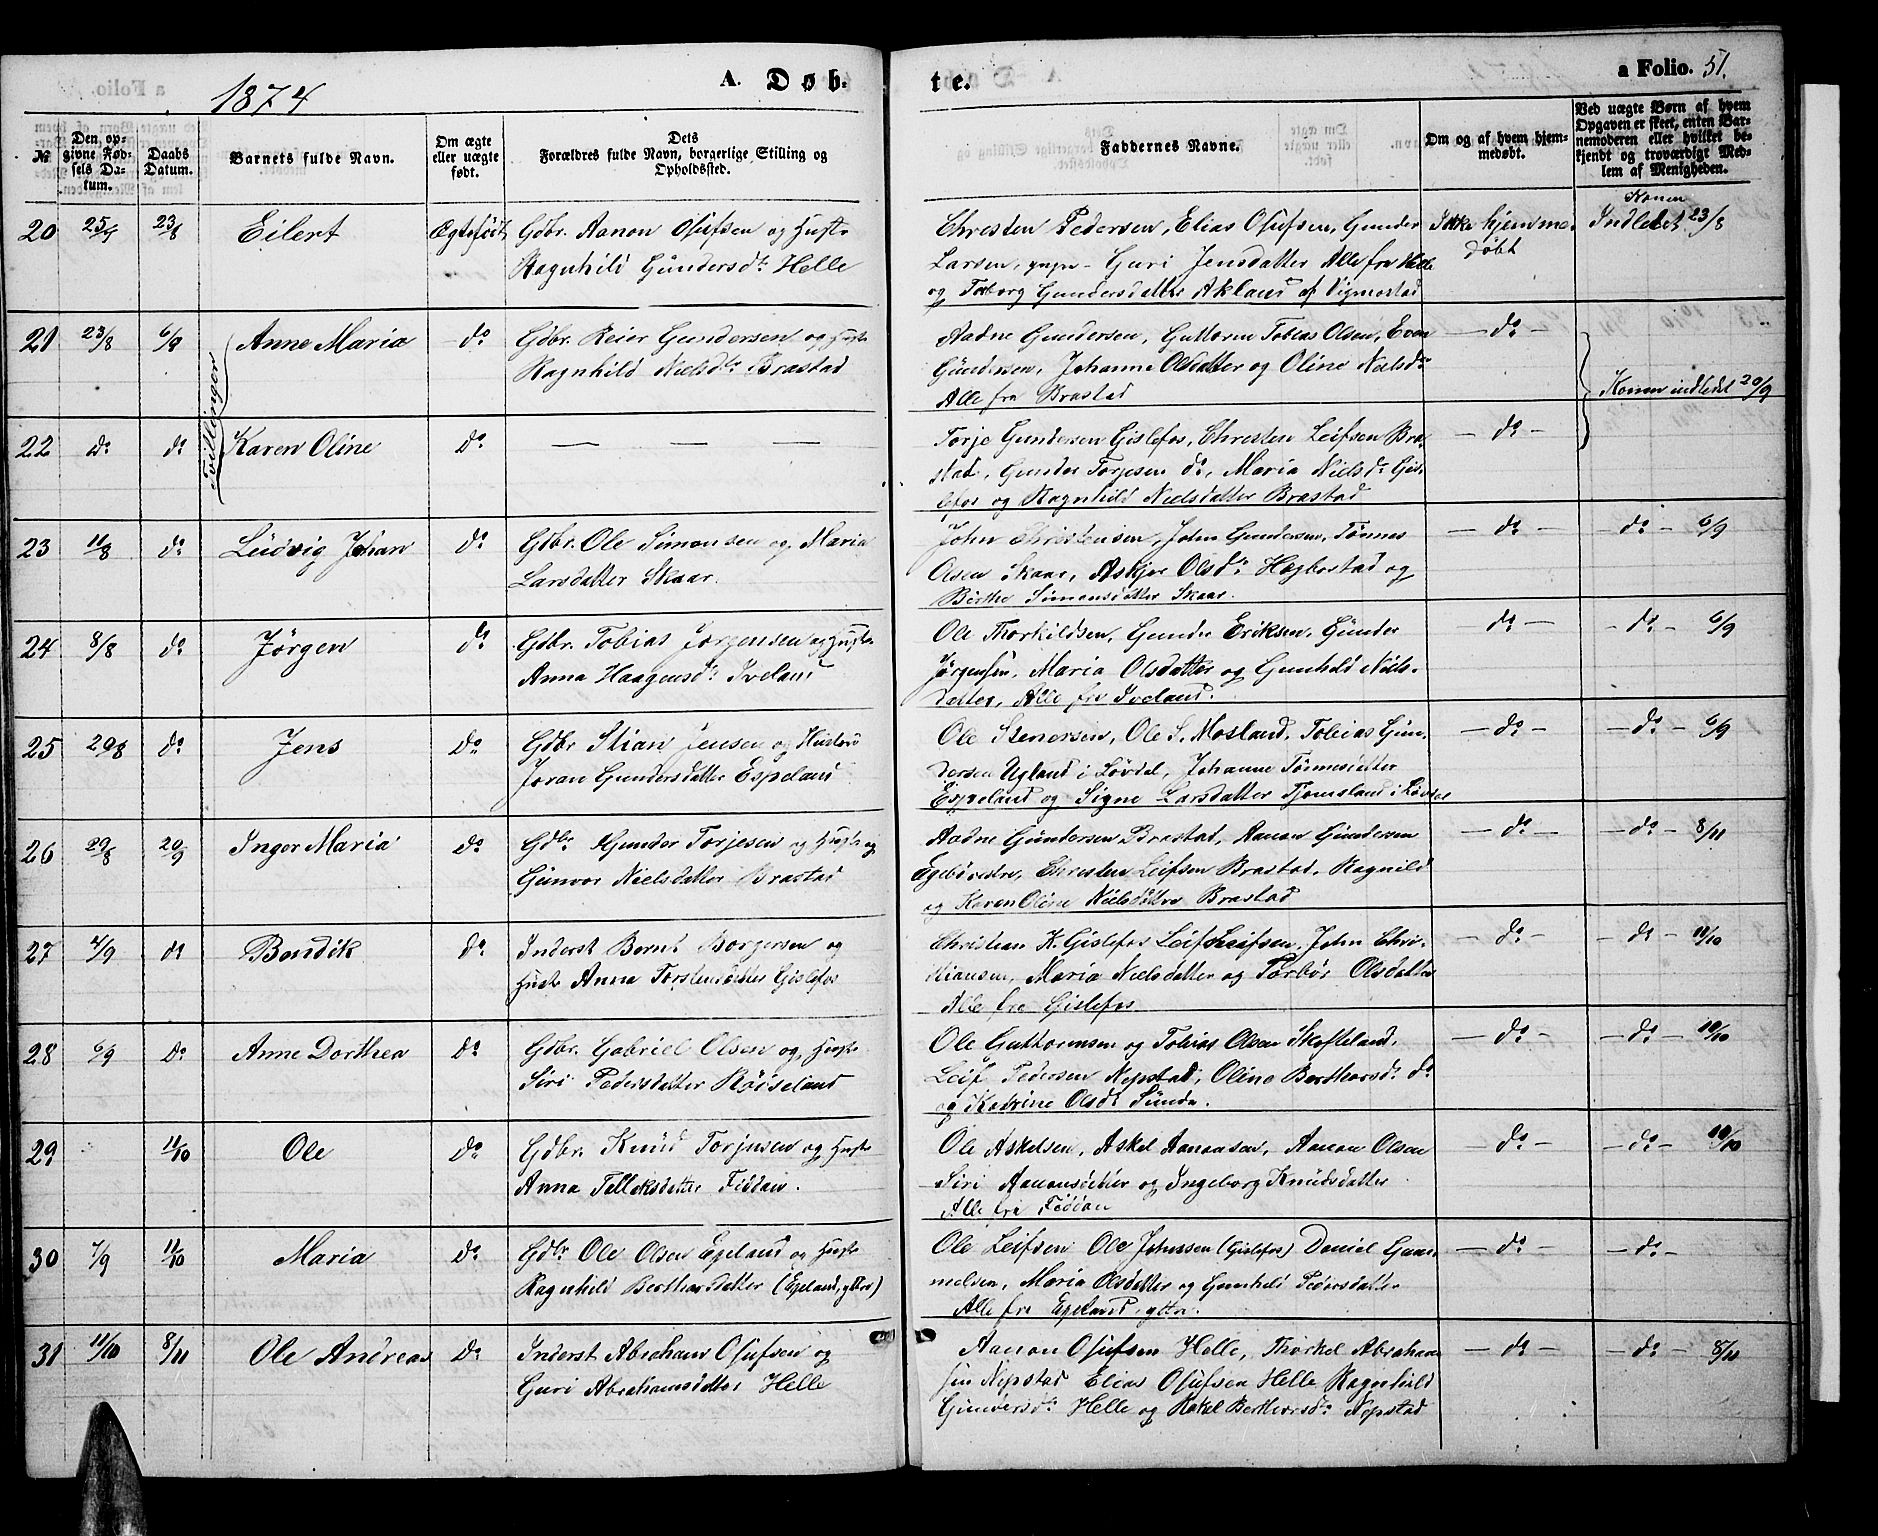 1874
A. Døb-
te.
a Folio. 51.
№
Den op-
givne Fød-
sels Da-
tum.
Daabs
Datum.
Barnets fulde Navn.
Om ægte
eller uægte
født.
Dets
Forældres fulde Navn, borgerlige Stilling og
Opholdssted.
Faddernes Navne.
Om og af hvem hjem-
medøbt.
Ved uægte Børn af hvem
Opgaven er skeet, enten Bar-
nemoderen eller hvilket be-
kjendt og troværdigt Med-
lem af Menigheden.
20 23/8 Eilert Ægtefødt Gdbr. Aanon Osufsen og Hustr
Ragnhild Gundersdtr Helle
Christen Pedersen, Elias Osufsen, Gunder
Larsen, Guri Jensdatter Alle fra Helle
og Torborg Gundersdatter Akland af Vigmostad
Ikke hjemme-
døbt
Konen
Indledet 23/8
21 23/8 6/9 Anne Maria do Gdbr. Reier Gundersen og Hustr
Ragnhild Nielsdtr Brastad
Tvillinger
Aadne Gundersen, Guttorm Tobias Olsen, Even
Gundersen, Johanne Olsdatter og Oline Nielsdtr
Alle fra Brastad
— do —
Konen indledet 20/9
22 do do Karen Oline do — — —
Torje Gundersen Gislefos, Christen Leifsen Bra-
stad, Gunder Torjesen do, Maria Nielsdtr Gis-
lefos og Ragnhild Nielsdatter Brastad
— do —
23 11/8 do Ludvig Johan do Gdbr. Ole Simonsen og Maria
Larsdatter Skaar.
John Christensen, John Gundersen, Tønnes
Olsen Skaar, Askjer Olsdtr Høgbostad og
Birthe Simonsdatter Skaar.
— do — — do — 6/9
24 8/8 do Jørgen do Gdbr. Tobias Jørgensen og Hustr
Anna Haagensdtr Iveland
Ole Thorkildsen, Gunder Eriksen, Gunder
Jørgensen, Maria Olsdatter og Gunhild Niels-
datter, Alle fra Iveland.
— do — — do — 6/9
25 29/8 do Jens do Gdbr Stian Jensen og Hustru
Joran Gundersdatter Espeland
Ole Stenersen, Ole S. Mosland, Tobias Gun-
dersen Ugland i Løvdal, Johanne Tønnesdatter
Espeland og Signe Larsdatter Tjomsland i Løvdal
— do — — do — 6/9
26 29/8 20/9 Inger Maria do Gdbr Gunder Torjesen og Hustr og
Gunvor Nielsdatter Brastad
Aadne Gundersen Brastad, Aanon Gundersen
Egebøvestre, Christen Leifsen Brastad, Ragnild
og Karen Oline Nielsdøttre Brastad
— do — — do — 8/11
27 4/9 do Bendik do Inderst Bernt Borgersen og
Hustr Anna Torstensdatter Gislefos
Christian K. Gislefos Leif Leifsen, John Chri-
stiansen, Maria Nielsdatter og Torbør Olsdatter
Alle fra Gislefos.
— do — — do — 11/10
28 6/9 do Anne Dorthea do Gdbr. Gabriel Olsen og Hustr
Siri Pedersdatter Røiseland
Ole Guttormsen og Tobias Olsen Skofteland,
Leif Pedersen Nepstad, Oline Berthorsdtr do
og Katrine Olsdt Sunde.
— do — — do — 11/10
29 11/10 Ole do Gdbr. Knud Torjusen og Hustr
Anna Telleksdatter Fiddan.
Ole Askelsen, Askel Aanonsen, Aanon Olsen
Siri Aanonsdatter og Ingeborg Knudsdatter
Alle fra Fiddan
— do — — do — 11/10
30 7/9 11/10 Maria do Gdbr Ole Olsen Egeland og Hustr
Ragnhild Berthorsdatter (Egeland, yttre)
Ole Leifsen Ole Johnssen (Gislefos) Daniel Gun-
nelsen, Maria Olsdatter og Gunhild Pedersdatter
Alle fra Egeland, yttre.
— do — — do —
31 11/10 8/11 Ole Andreas do Inderst Abraham Osufsen og
Guri Abrahamsdatter Helle
Aanon Osufsen Helle, Thorkel Abraham-
sen Nepstad Elias Osufsen Helle Ragnhild
Gundersdtr Helle og Rakel Berthorsdtr Nepstad
— do — — do — 8/11